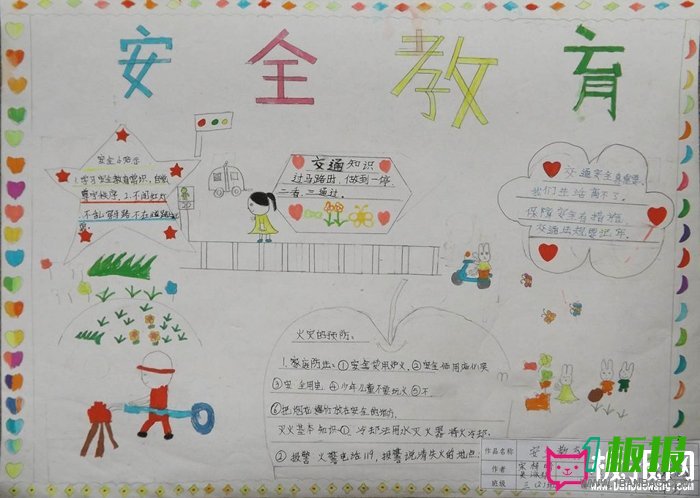 安全教育
安全小知识
1.学习安全教育常识，自觉
遵守秩序，2.不闯红灯
不乱穿马路不在道路
交通知识
过马路时，做到一停
二看，三通过
交通安全真重要，
我们生活离不了，
保障安全有措施
交通法规要记牢
火灾的预防：
1.家庭防火：①安全使用炉火，②安全使用液化
③安全用电 ④少年儿童不要玩火⑤不
灭火基本知识①.冷却法用水灭火器将火冷却，
②报警 火警电话119，报警说清失火的地点
作品名称 安
作者
班级
板报网